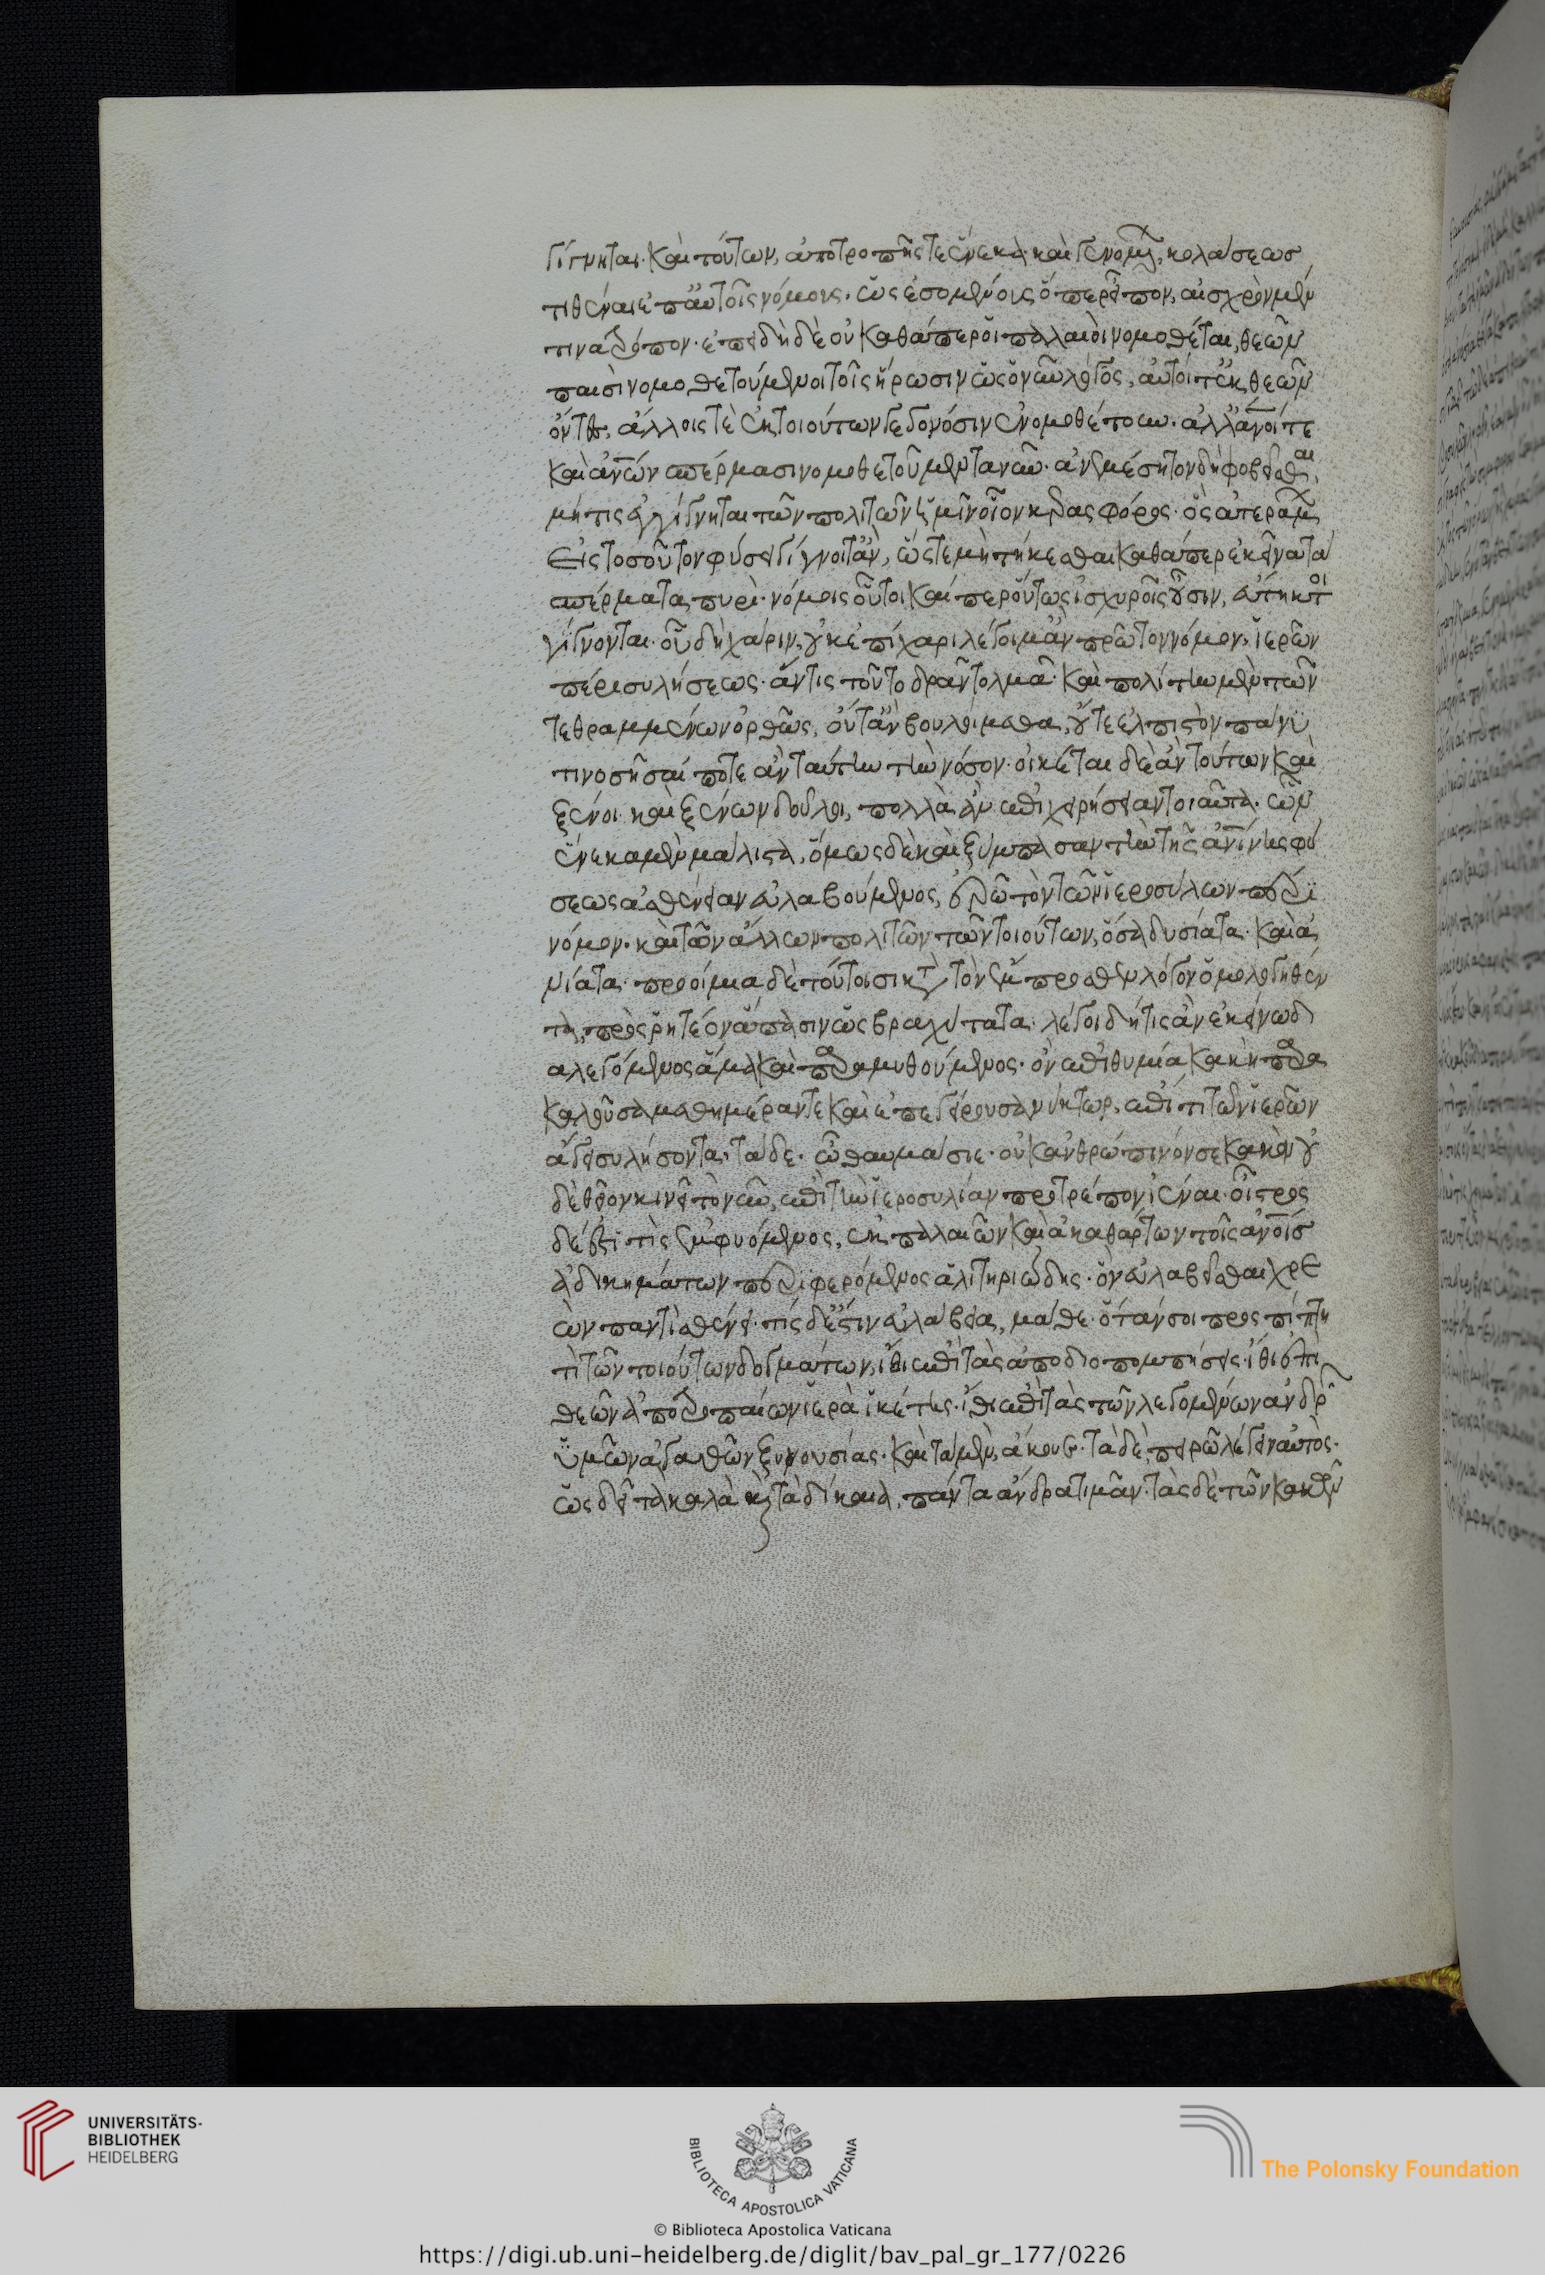 γίγνηται· καὶ τούτων, ἀποτροπῆς τε ἕνεκα καὶ γενομένων, κολάσεωσ
τιθέναι ἐπ' αὐτοῖς νόμους. ὡς ἐσομένοις ὅπερ εἶπον, αἰσχρὸν μέν
τινα τρόπον· ἐπειδὴ δὲ οὐ καθάπερ οἱ παλαιοὶ νομοθέται, θεῶν
παισὶ νομοθετούμενοι τοῖς ἥρωσιν ὡς ὁ νῦν λόγος, αὐτοί τ' ἐκ θεῶν
ὄντες, ἄλλοις τὲ ἐκ τοιούτων γεγονόσιν ἐνομοθέτουν. ἀλλ' ἄνοί τε
καὶ ἀνῶν σπέρμασι νομοθετοῦμεν τανῦν. ἀνεμέσητον δὴ φοβεῖσθαι,
μή τις ἐγγίγνηται τῶν πολιτῶν ἡμῖν οἷον κέρας φόρος· ὃς ἀτεράμων
εἰς τοσοῦτον φύσει γίγνοιτ' ἂν, ὥστε μὴ τήκεσθαι καθάπερ ἐκεῖνα τὰ
σπέρματα πυρὶ· νόμοις οὗτοι καί περ οὕτως ἰσχυροῖς οὖσιν, ἄτηκτοι
γίγνονται· οὗ δὴ χάριν, οὐκ ἐπίχαρι λέγοιμ' ἂν πρῶτον νόμον, ἱερῶν
πέρι συλήσεως· ἄν τις τοῦτο δρᾶν τολμᾶ· καὶ πολίτην μὲν τῶν
τεθραμμένων ὀρθῶς, οὔτ' ἂν βουλοίμεθα, οὔτε ἐλπιστὸν πάνυ
τι νοσῆσαί ποτε ἂν ταύτην τὴν νόσον· οἰκέται δὲ ἂν τούτων καὶ
ξένοι καὶ ξένων δοῦλοι, πολλὰ ἂν ἐπιχειρήσειαν τοιαῦτα. ὧν
ἕνεκα μὲν μάλιστα, ὅμως δὲ καὶ ξύμπασαν τὴν τῆς ἀνίνης φύ
σεως ἀσθένειαν εὐλαβούμενος, ἐρῶ τὸν τῶν ἱεροσύλων πέρι
νόμον. καὶ τῶν ἄλλων πολιτῶν τῶν τοιούτων, ὅσα δυσίατα· καὶ ἀ
νίατα· προοίμια δὲ τούτοισι κτὰ τὸν ἔμπροσθεν λόγον ὁμολογηθέν
τα, προςρητέον ἅπασιν ὡς βραχύτατα. λέγοι δή τις ἂν ἐκείνω δι
αλεγόμενος ἅμα καὶ παραμυθούμενος· ὃν ἐπιθυμία κακὴ παρα
καλοῦσα μεθημέραν τε καὶ ἐπεγείρουσα νύκτωρ, ἐπί τι τῶν ἱερῶν
ἄγει συλήσοντα, τάδε. ὦ θαυμάσιε· οὐκ ἀνθρώπινόν σε κακὸν οὐ
δὲ θεῖον κινεῖ τὸ νῦν, ἐπὶ τὴν ἱεροσυλίαν προτρέπον ἰέναι. οἶστρος
δέ ἐστί τις ἐμφυόμενος, ἐκ παλαιῶν καὶ ἀκαθάρτων τοῖς ἀνοῖσ
ἀδικημάτων περιφερόμενος ἀλιτηριώδης· ὃν εὐλαβεῖσθαι χρε
ὼν παντὶ σθένει· τίς δ' ἔστιν εὐλάβεια, μάθε· ὅτάν σοι προςπίπτη
τὶ τῶν τοιούτων δογμάτων, ἴθι ἐπὶ τὰς ἀποδιοπομπήσεις· ἴθι ἐπὶ
θεῶν ἀποτροπαίων ἱερὰ ἱκέτης· ἴθι ἐπὶ τὰς τῶν λεγομένων ἀνδρῶν
ὑμῶν ἀγαθῶν ξυνουσίας· καὶ τὰ μὲν, ἄκουε· τὰ δὲ, πειρῶ λέγειν αὐτὸς·
ὡς δεῖ τὰ καλὰ καὶ τὰ δίκαια, πάντα ἄνδρα τιμᾶν· τὰς δὲ τῶν κακῶν
UNIVERSITÄTS-
BIBLIOTHEK
HEIDELBERG
BIBLIOTECA APOSTOLICA VATICANA
The Polonsky Foundation
© Biblioteca Apostolica Vaticana
https://digi.ub.uni-heidelberg.de/diglit/bav_pal_gr_177/0226